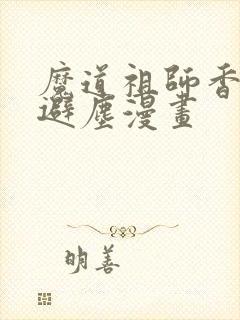 魔道祖師香
避塵漫畫
明善